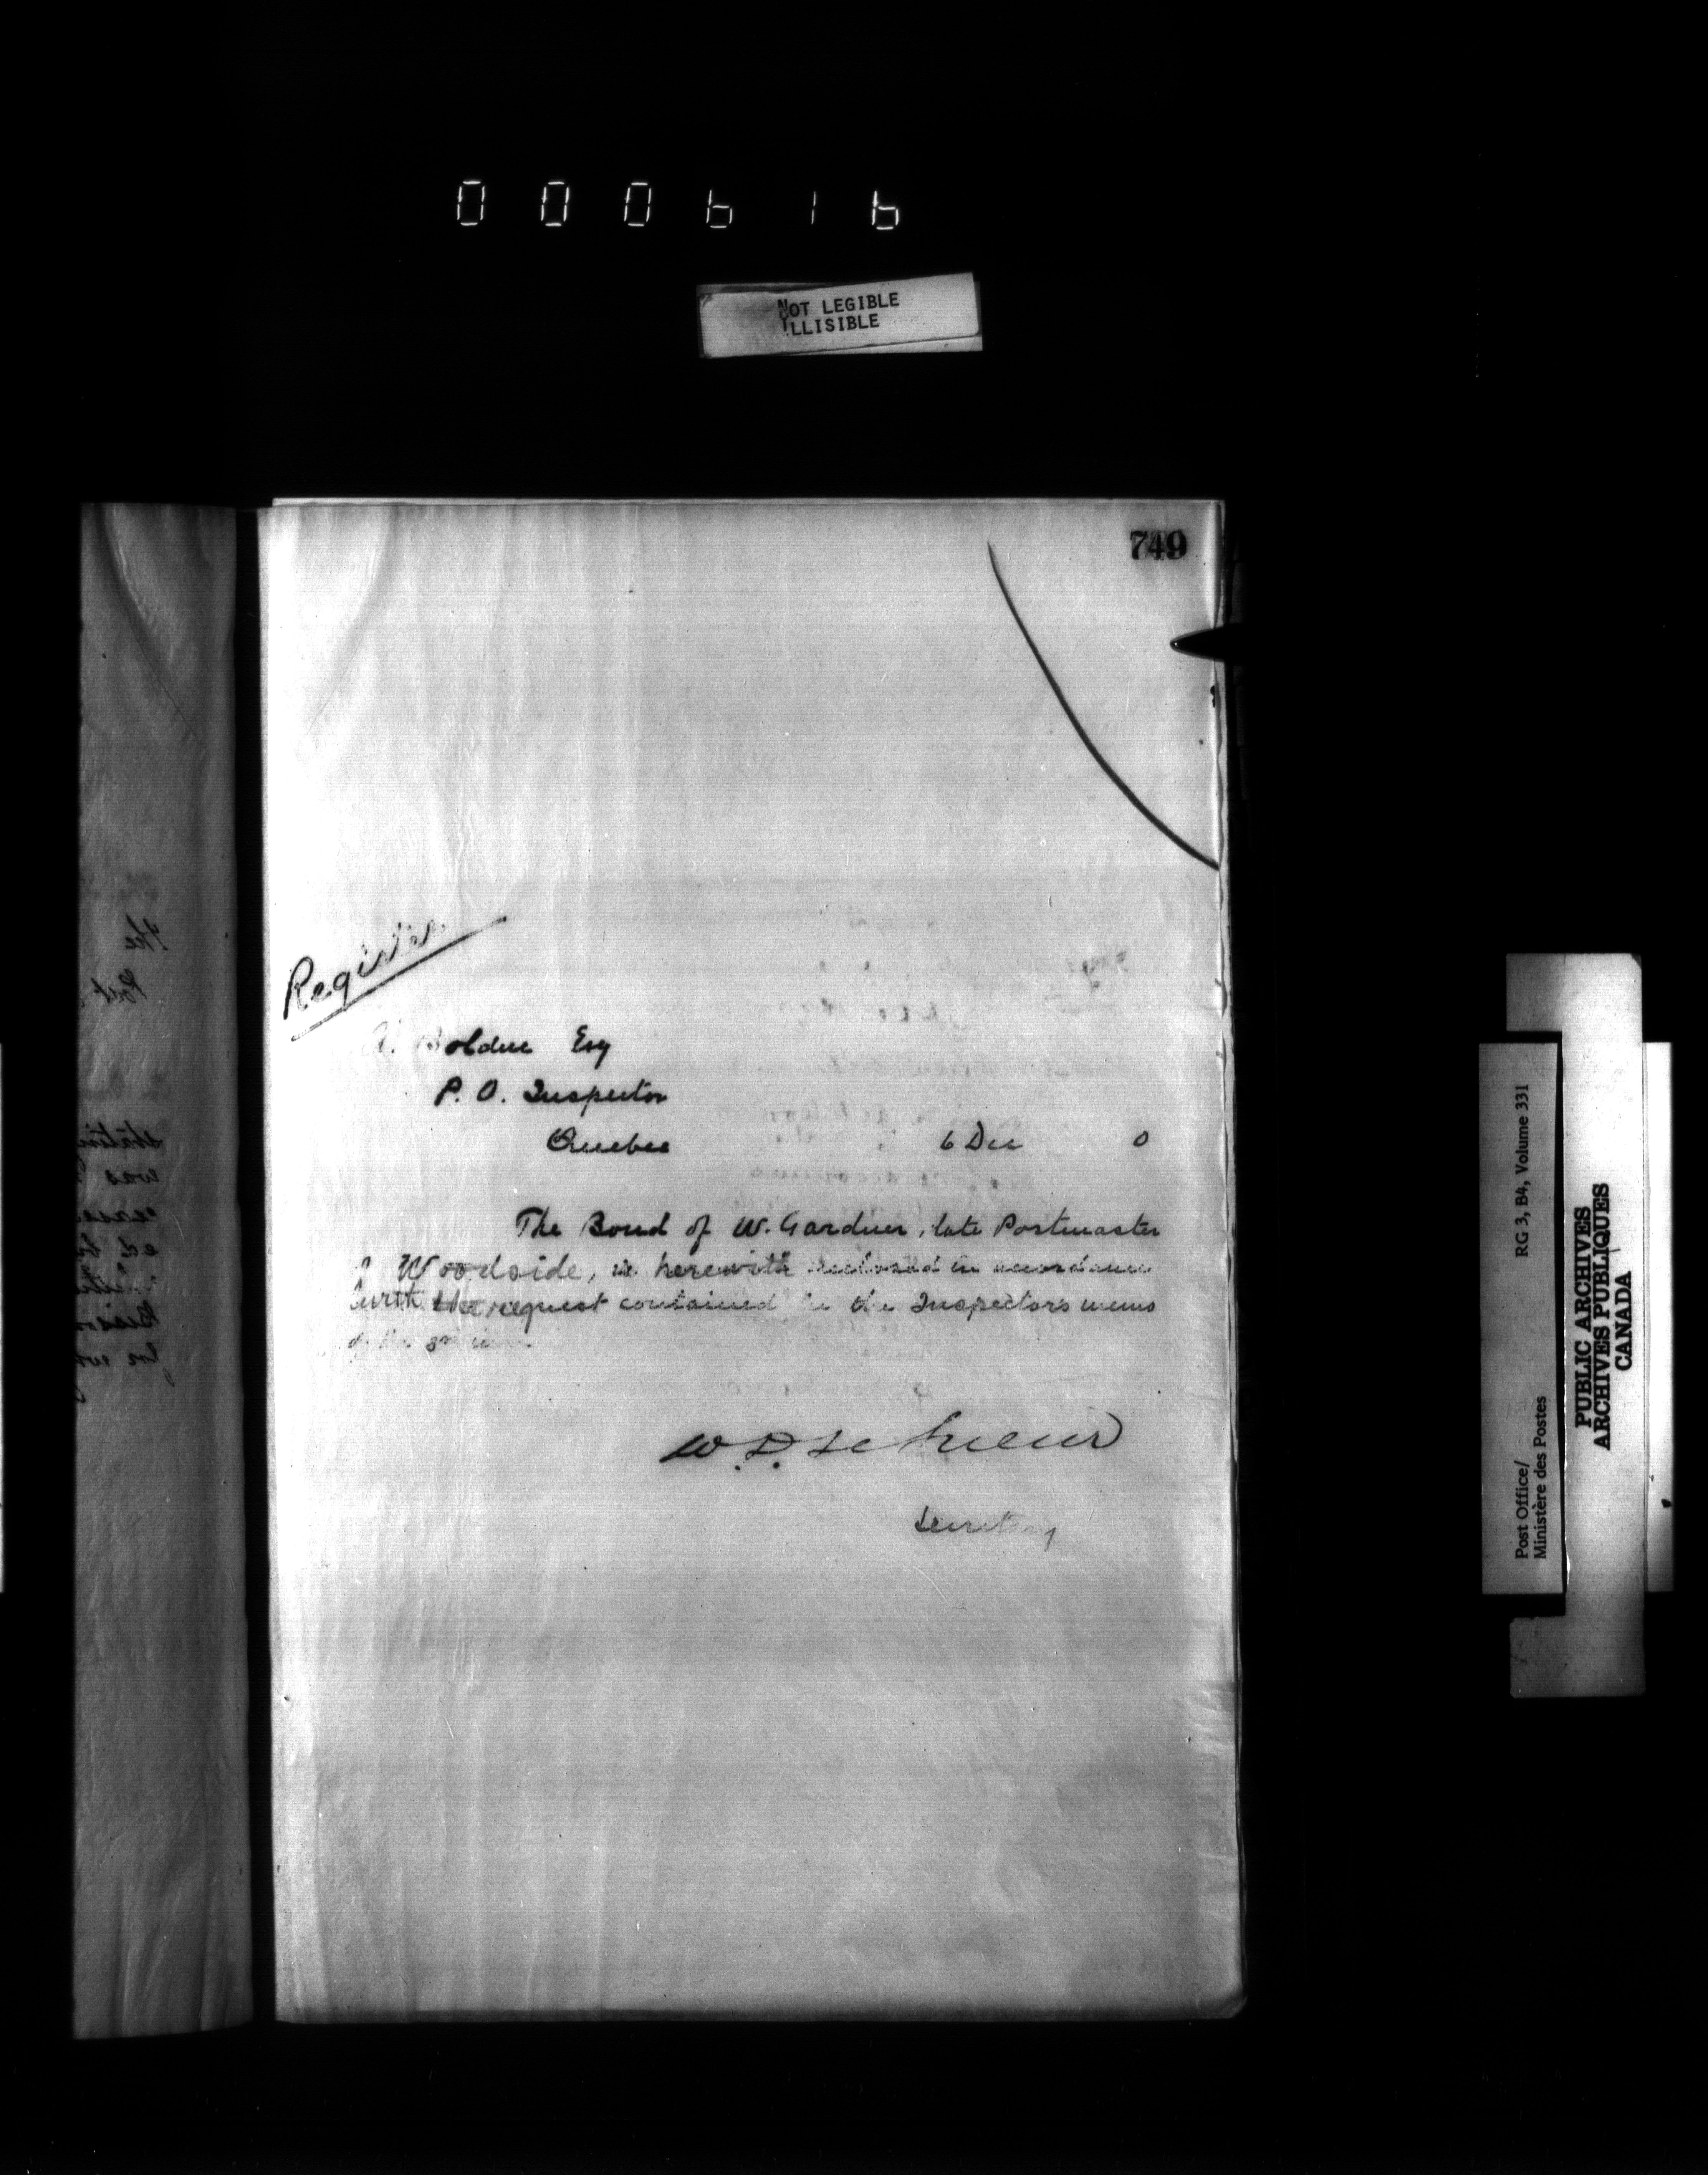 000616
NOT LEGIBLE
ILLISIBLE
749
Register
A. Bolduc Esq
P. O. Inspector
Quebec 6 Dec 0
The Bond of W. Gardner, late Postmaster
of Woodside, is herewith enclosed in accordance
with the request contained in the Inspector's memo
of the 3rd
W.D. LeSueur
Secretary
Post Office/
Ministère des Postes
RG 3, B4, Volume 331
PUBLIC ARCHIVES
ARCHIVES PUBLIQUES
CANADA